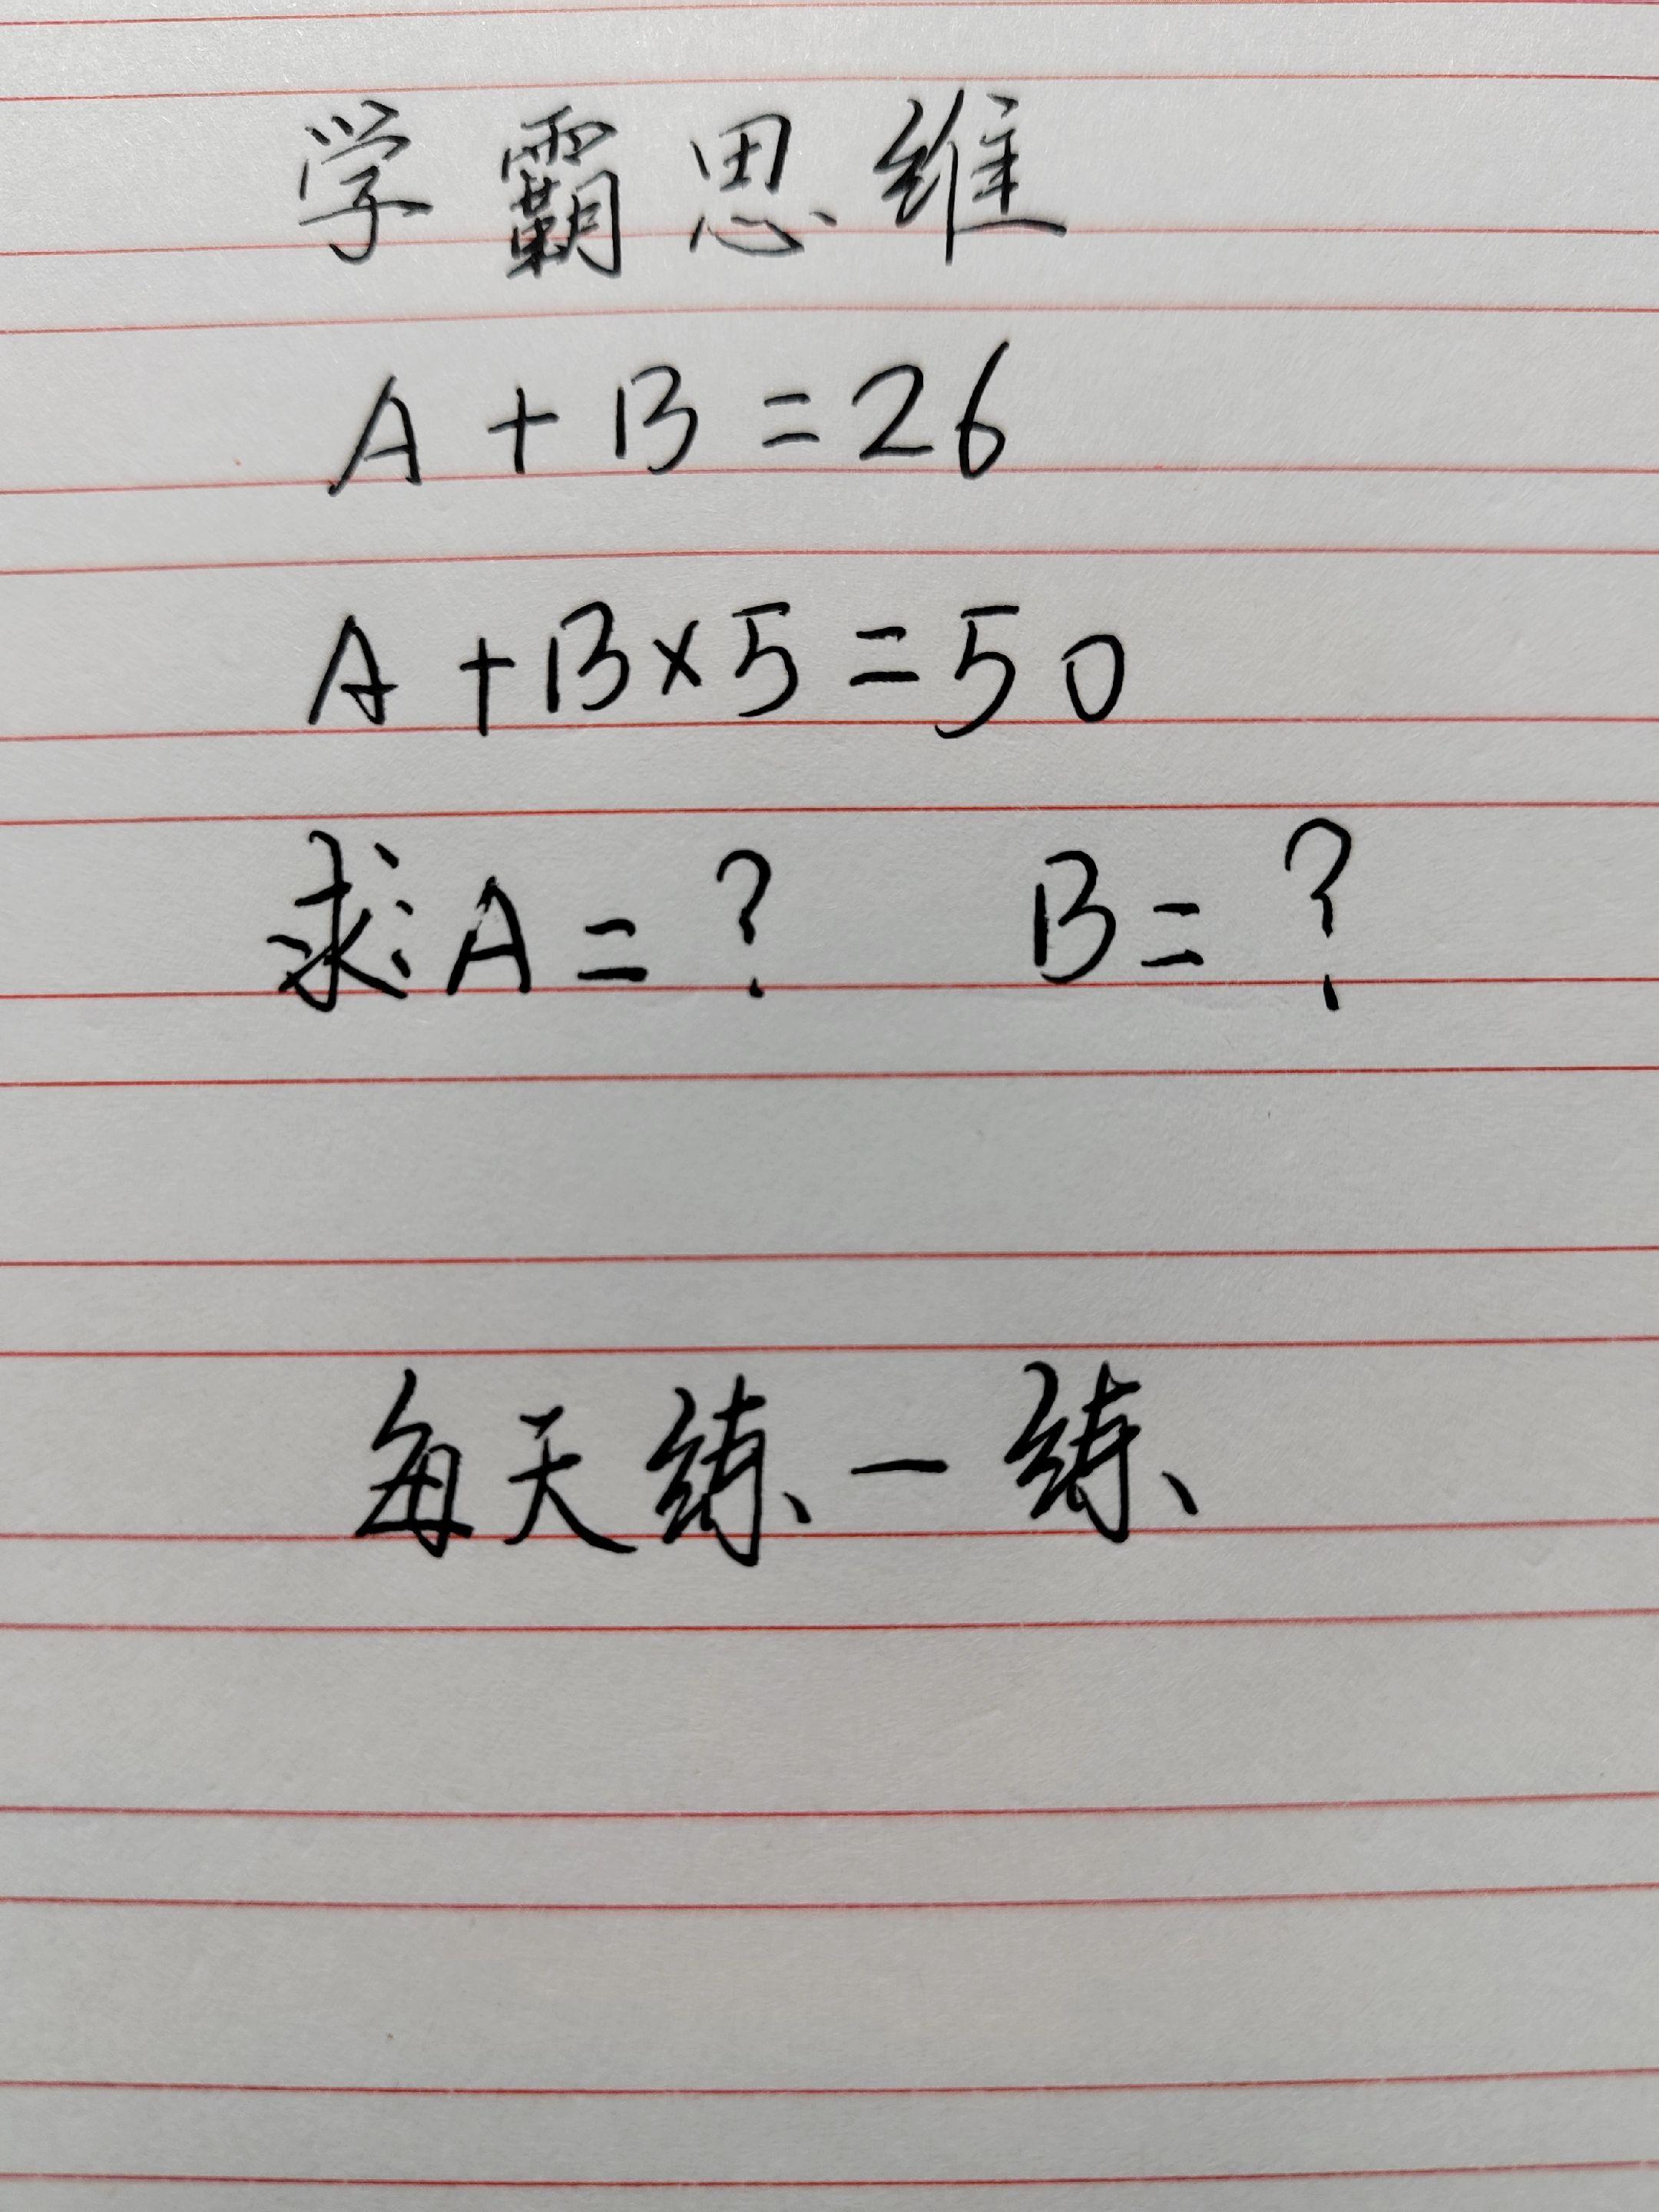 学霸思维
A+B=26
A+B×5=50
求A=? B=?
每天练一练